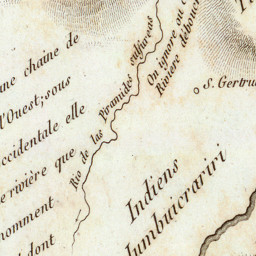 une chaine de
l'Ouest; sous
ccidentale elle
e rivière que
nomment
dont
Rio de las Piramides sulfureas
On ignore où c
Rivière débou
S. Gertru
Indiens